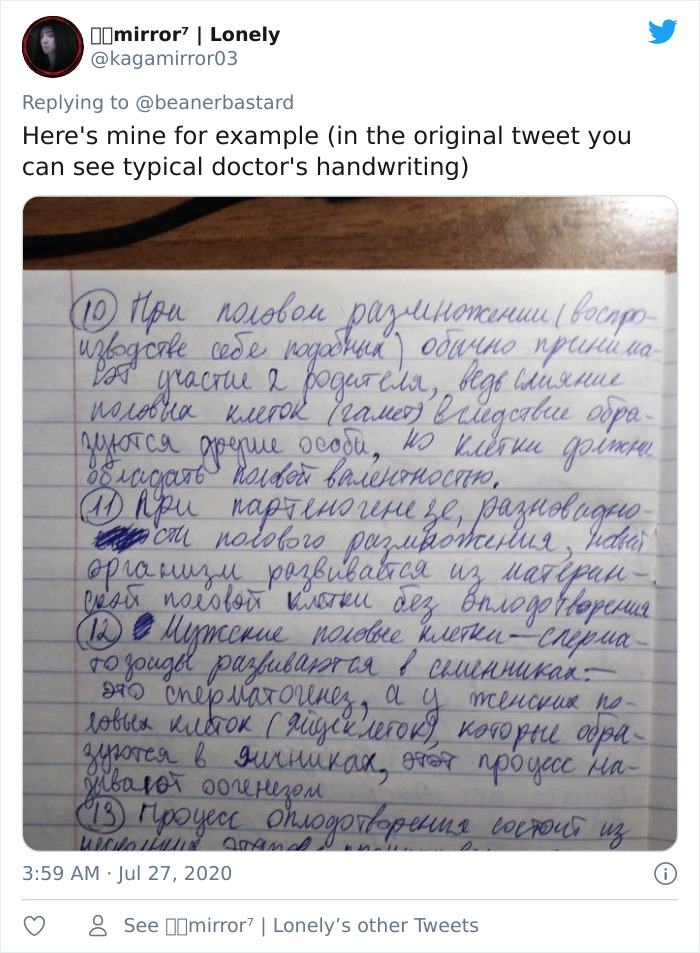 mirror⁷ | Lonely
@kagamirror03
Replying to @beanerbastard
Here's mine for example (in the original tweet you
can see typical doctor's handwriting)
10 При половом размножении (воспро-
изводстве себе подобных) обычно принима-
ют участие 2 родителя, ведь слияние
половых клеток (гамет) вследствие обра-
зуются особи, но клетки должны
обладать половой валентностью.
11 При партеногенезе, разновидно-
сти полового размножения, новый
организм развивается из материн-
ской половой клетки без оплодотворения
12 Мужские половые клетки — сперма-
тозоиды развиваются в семенниках —
это сперматогенез, а у женских по-
ловых клеток (яйцеклеток), которые обра-
зуются в яичниках, этот процесс на-
зывают оогенезом
13 Процесс оплодотворения состоит из
нескольких этапов
3:59 AM · Jul 27, 2020
See mirror⁷ | Lonely’s other Tweets